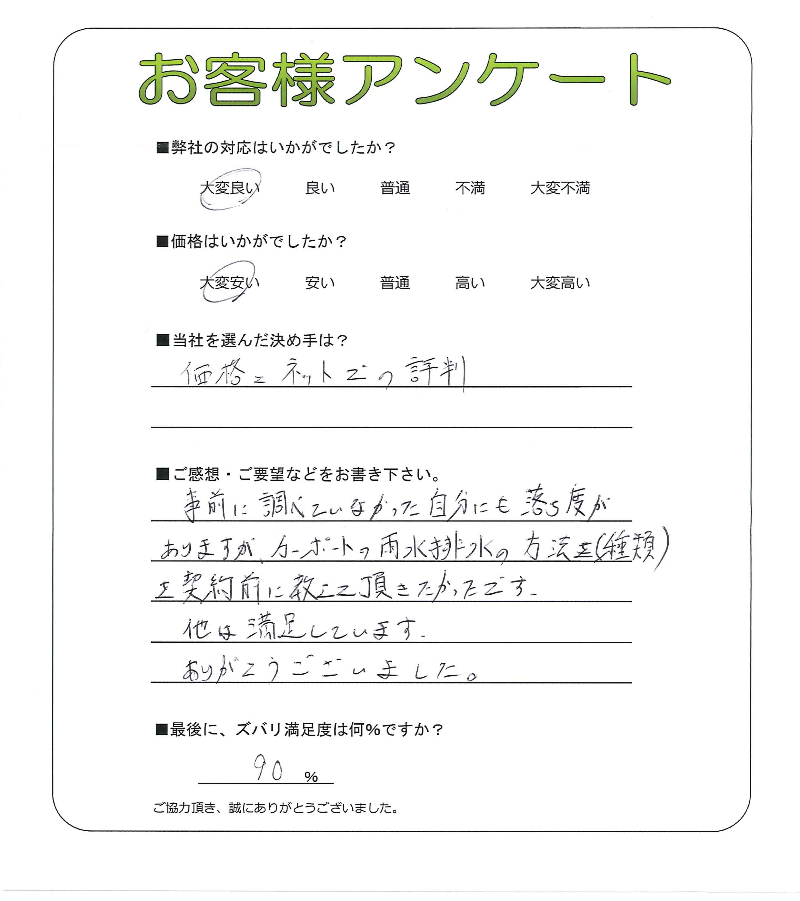 お客様アンケート
■弊社の対応はいかがでしたか？
大変良い 良い 普通 不満 大変不満
■価格はいかがでしたか？
大変安い 安い 普通 高い 大変高い
■当社を選んだ決め手は？
価格とネットでの評判
■ご感想・ご要望などをお書き下さい。
事前に調べていなかった自分にも落ち度が
ありますが、カーポートの雨水排水の方法を(種類)
を契約前に教えて頂きたかったです.
他は満足しています.
ありがとうございました。
■最後に、ズバリ満足度は何％ですか？
90 %
ご協力頂き、誠にありがとうございました。